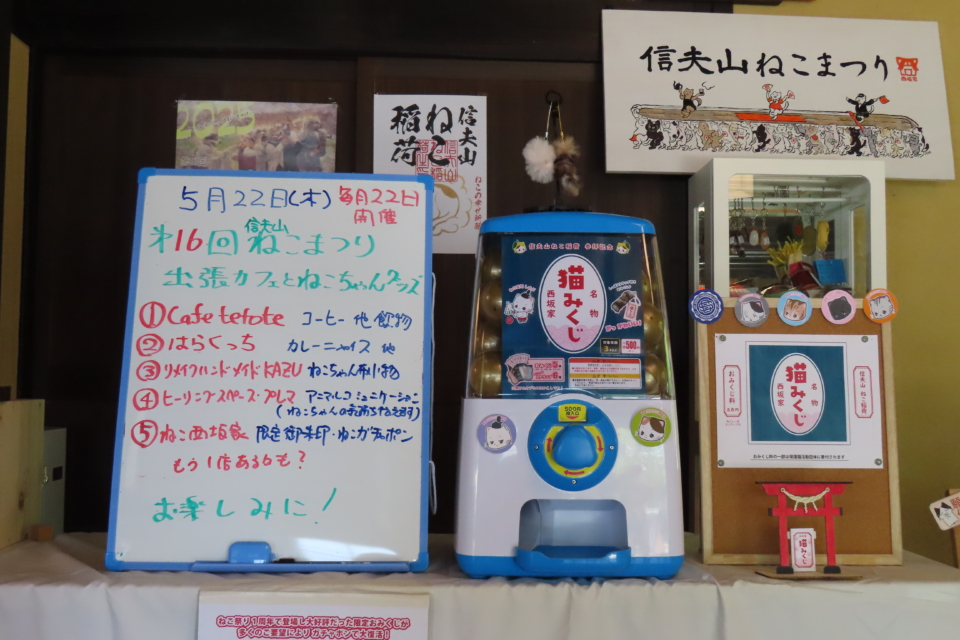 信夫山ねこまつり
2025
信夫山
ねこ
稲荷
5月22日(木) 毎月22日
開催
信夫山
第16回 ねこまつり
出張カフェとねこちゃんグッズ
① Cafe tefote コーヒー 他 飲物
② はらくっち カレーライス 他
③ リメイクハンドメイドKAZU ねこちゃん布小物
④ ヒーリングスペース・プレマ アニマルコミュニケーション
(ねこちゃんの気持ちを話す)
⑤ ねこ西坂家 限定御朱印・ねこガチャポン
もう1店あるかも?
お楽しみに!
信夫山ねこ稲荷 参拝記念
名物
猫みくじ
西坂家
500円
500円
投入口
おみくじ料
名物
猫みくじ
西坂家
信夫山ねこ稲荷
猫みくじ
ねこ祭り1周年で登場し大好評だった限定おみくじが
多くのご要望により ガチャポンで大復活!